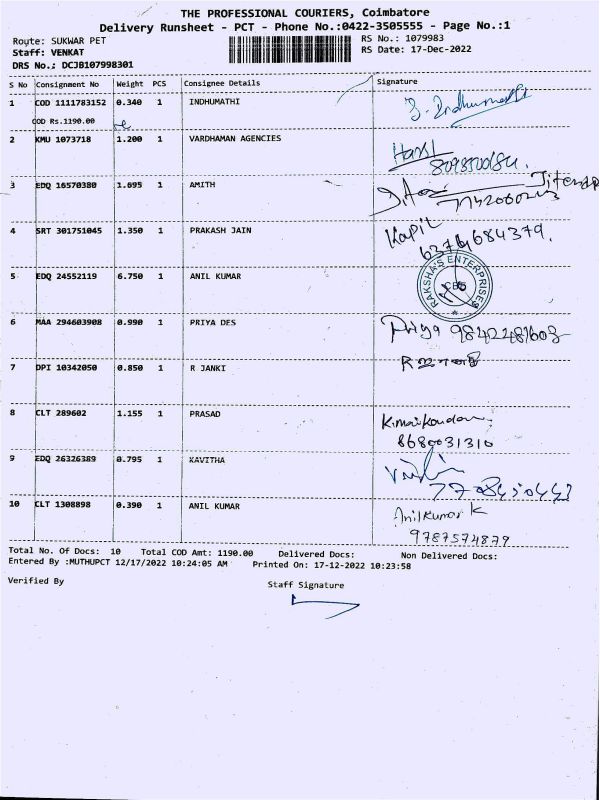 THE PROFESSIONAL COURIERS, Coimbatore
Delivery Runsheet - PCT - Phone No.:0422-3505555 - Page No.:1
Route: SUKWAR PET
RS No.: 1079983
Staff: VENKAT
RS Date: 17-Dec-2022
DRS No.: DCJB107998301
S No Consignment No Weight PCS Consignee Details Signature
1 COD 1111783152 0.340 1 INDHUMATHI
COD Rs.1190.00
2 KMU 1073718 1.200 1 VARDHAMAN AGENCIES
3 EDQ 16570380 1.695 1 AMITH
Jitendr
4 SRT 301751045 1.350 1 PRAKASH JAIN
Kapil
6374684379.
5 EDQ 24552119 6.750 1 ANIL KUMAR
RAKSHA'S ENTERPRISES
CBE
6 MAA 294603908 0.990 1 PRIYA DES
Priya 9842481603
7 DPI 10342050 0.850 1 R JANKI
8 CLT 289602 1.155 1 PRASAD
8680031310
9 EDQ 26326389 0.795 1 KAVITHA
7708450443
10 CLT 1308898 0.390 1 ANIL KUMAR
Anilkumar K
9787574879
Total No. Of Docs: 10 Total COD Amt: 1190.00 Delivered Docs: Non Delivered Docs:
Entered By :MUTHUPCT 12/17/2022 10:24:05 AM Printed On: 17-12-2022 10:23:58
Verified By
Staff Signature